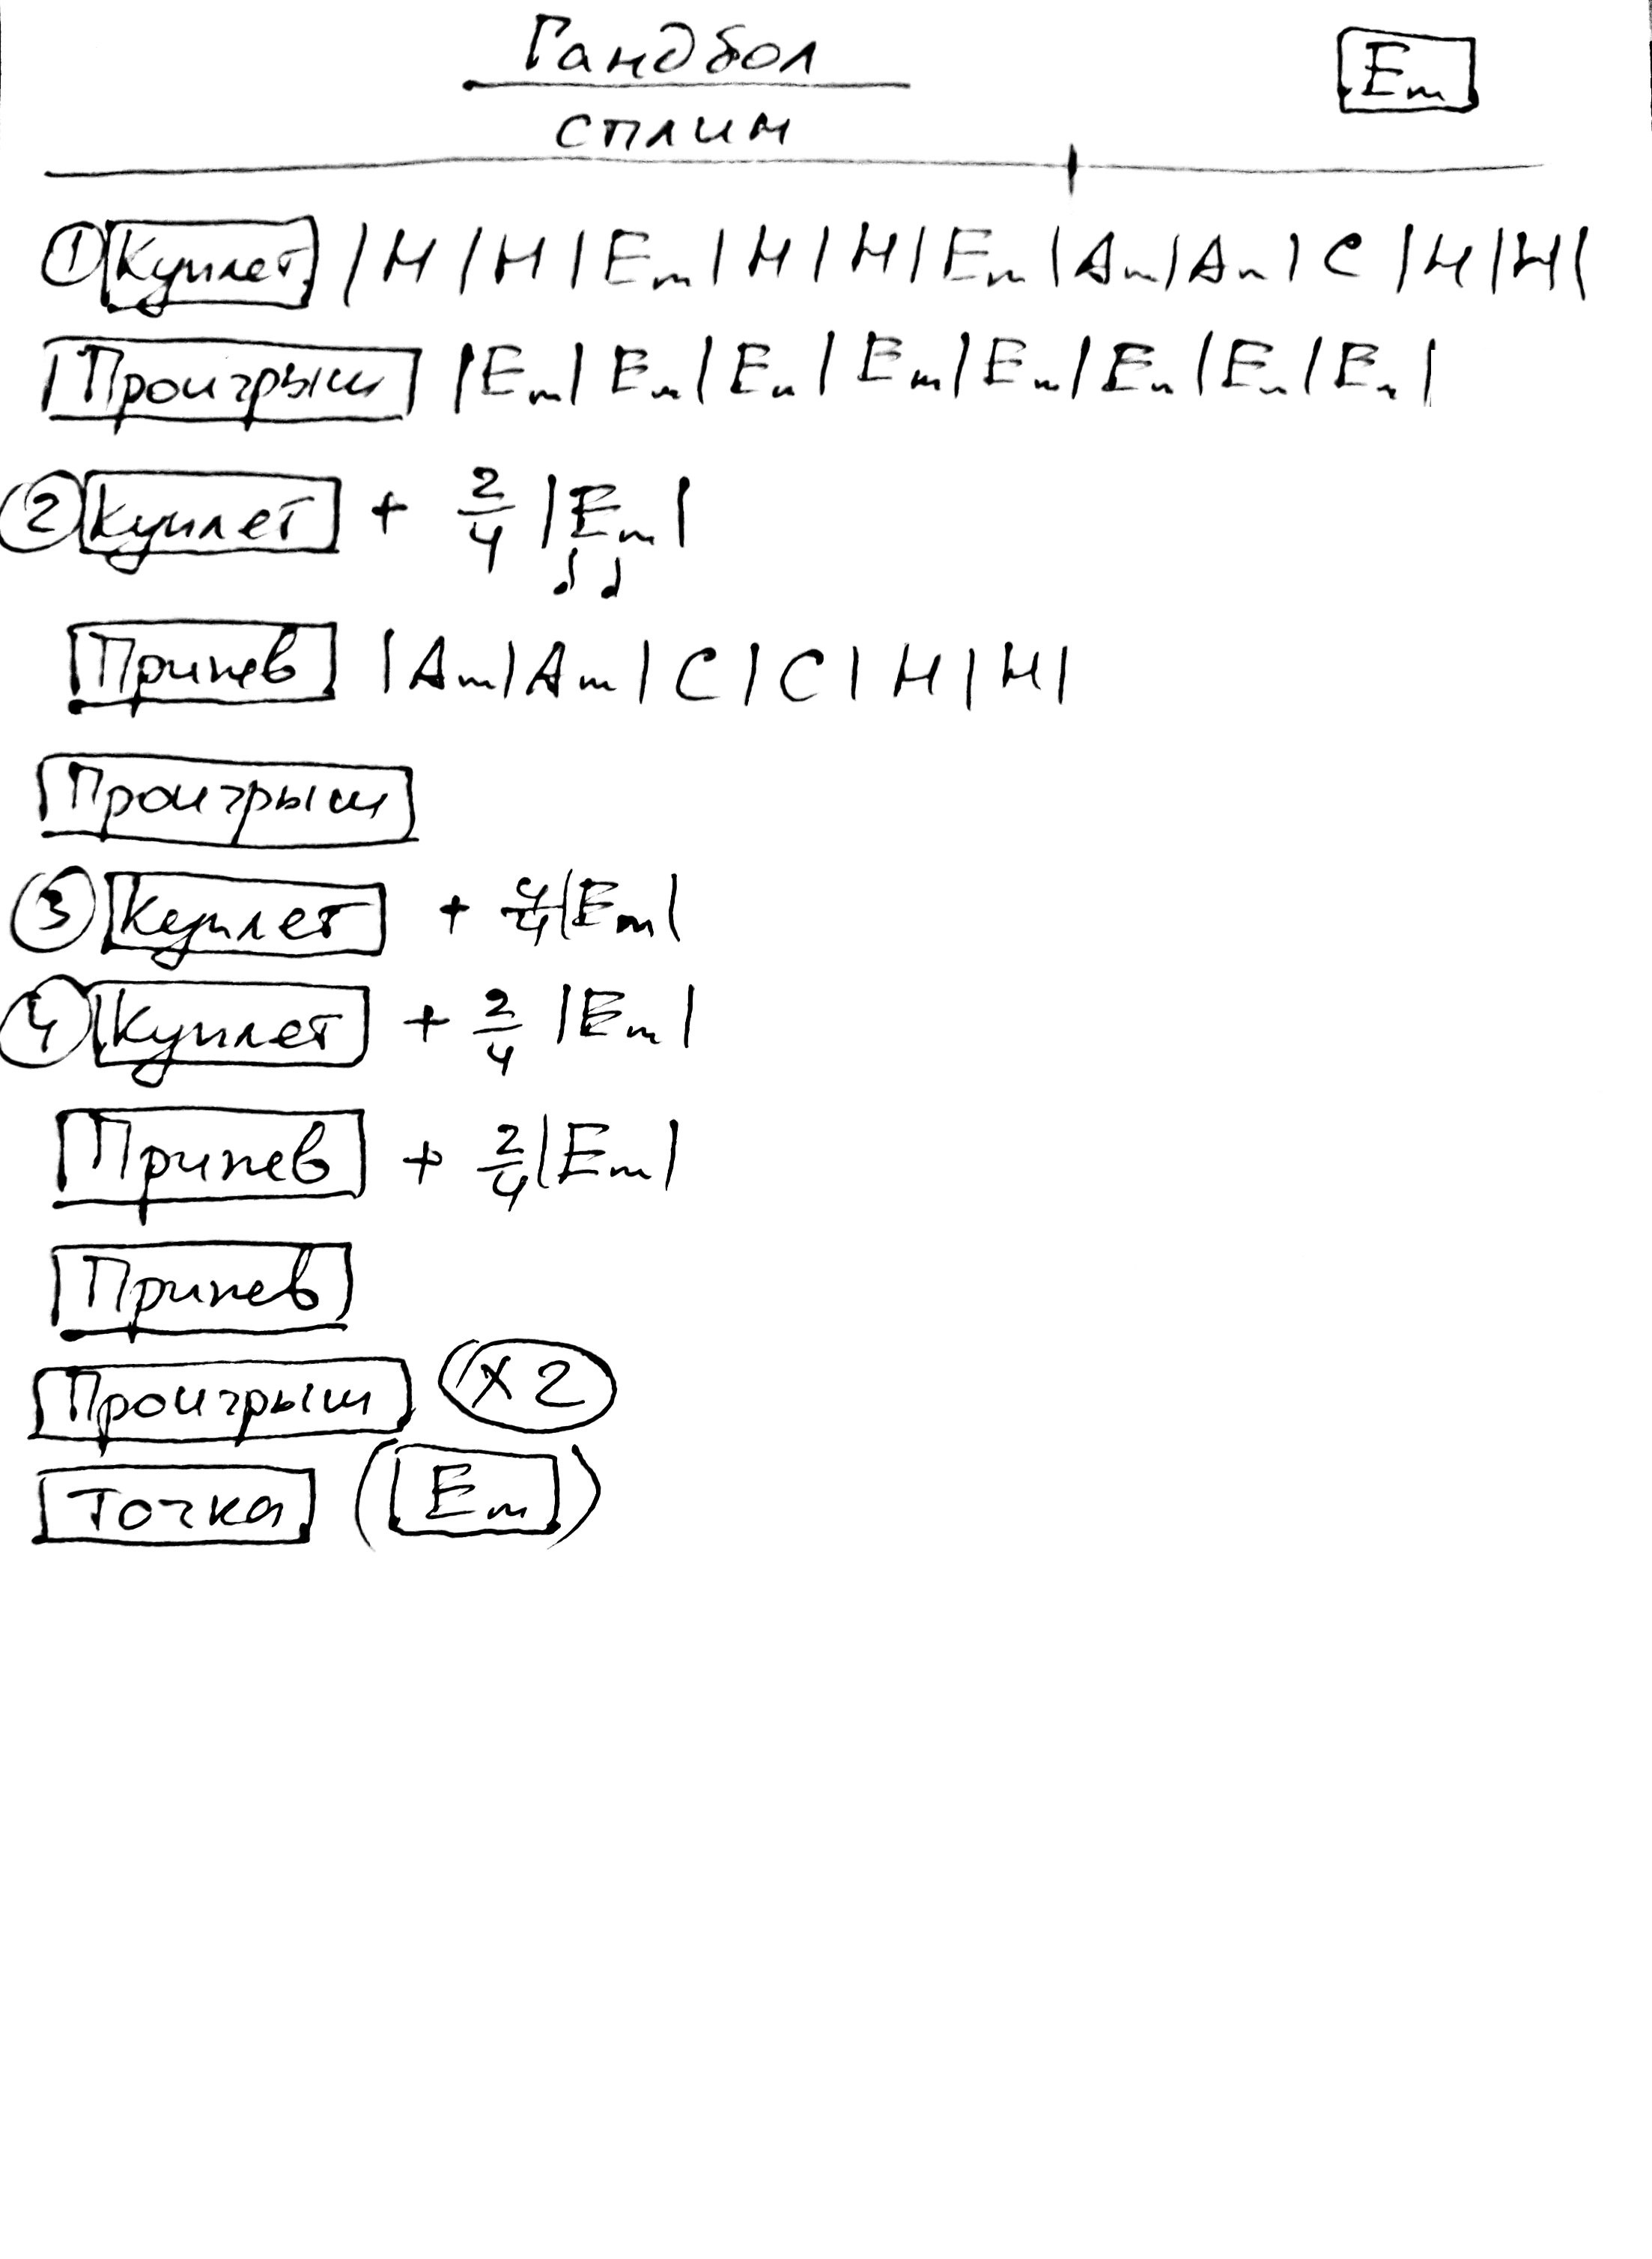 Гандбол
Em
сплин
1 Куплет | H | H | Em | H | H | Em | Am | Am | C | H | H |
Проигрыш | Em | Em | Em | Em | Em | Em | Em | Em |
2 Куплет + 2/4 | Em |
♩ ♩
Припев | Am | Am | C | C | H | H |
Проигрыш
3 Куплет + | Em |
4 Куплет + 2/4 | Em |
Припев + 2/4 | Em |
Припев
Проигрыш x2
Точка (Em)